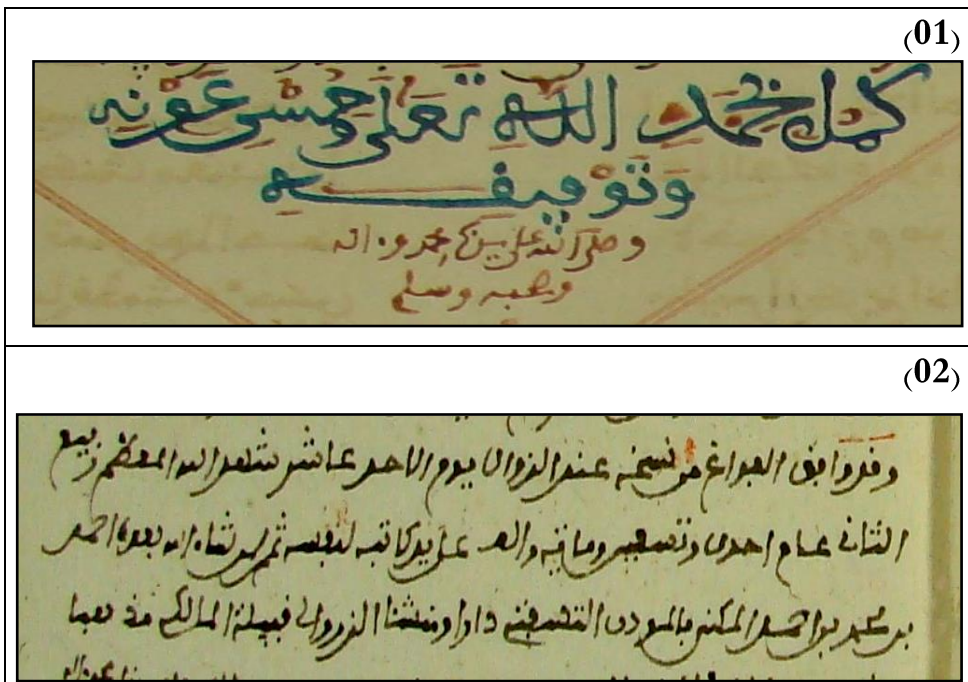 (01)
كمل بحمد الله تعلى وحسن عونه
وتوفيقه
وصلى الله على سيدنا محمد وءاله
وصحبه وسلم
(02)
وقد وافق الفراغ من نسخه عند الزوال يوم الاحد عاشر شهر الله المعظم ربيع
الثانى عام احدى وتسعين ومائة والف على يد كاتبه لنفسه ثم لمن شاء الله بعده احمد
بن محمد بن احمد المكنى التشفينى دارا ومنشئا الزروالى قبيلة المالكى مذهبا